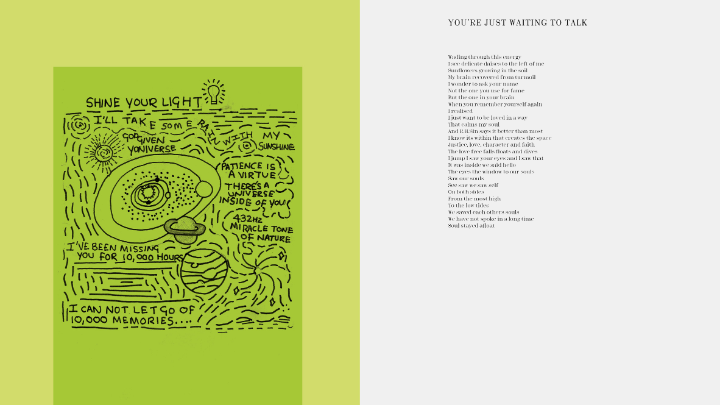 SHINE YOUR LIGHT
I'LL TAKE SOME RAIN WITH MY SUNSHINE
GOD GIVEN
YONIVERSE
PATIENCE IS
A VIRTUE
THERE'S A
UNIVERSE
INSIDE OF YOU
432HZ
MIRACLE TONE
OF NATURE
I'VE BEEN MISSING
YOU FOR 10,000 HOURS
I CAN NOT LET GO OF
10,000 MEMORIES....
YOU'RE JUST WAITING TO TALK
Wading through this energy
I see delicate daises to the left of me
Sunflowers growing in the soil
My brain recovered from turmoil
I wonder to ask your name
Not the one you use for fame
But the one in your brain
When you remember yourself again
I realised
I just want to be loved in a way
That calms my soul
says it better than most
I know its within that creates the space
Justice, love, character and faith
The love free falls floats and dives
I jump I saw your eyes and I saw that
It was inside we said hello
The eyes the window to our souls
Saw our souls
See our we can self
On both sides
From the most high
To the low tides
We saved each others souls
We have not spoke in a long time
Soul stayed afloat